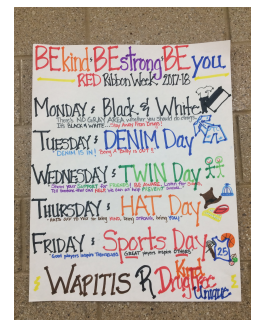 BEkind BEstrong BE you
RED Ribbon Week 2017-18
MONDAY: Black & White
There's NO GRAY AREA whether you should do drugs
It's BLACK & WHITE... Stay Away From Drugs!
TUESDAY: DENIM Day
DENIM IS IN! Being A Bully is OUT!!
WEDNESDAY: TWIN Day
Show your SUPPORT for FRIENDS! BE AWARE
THURSDAY: HAT Day
HATS OFF TO YOU for being KIND, being STRONG, being YOU!
FRIDAY: Sports Day
Good players inspire Themselves GREAT players inspire others
25
WAPITIS R Drug Free
Kind
Unique